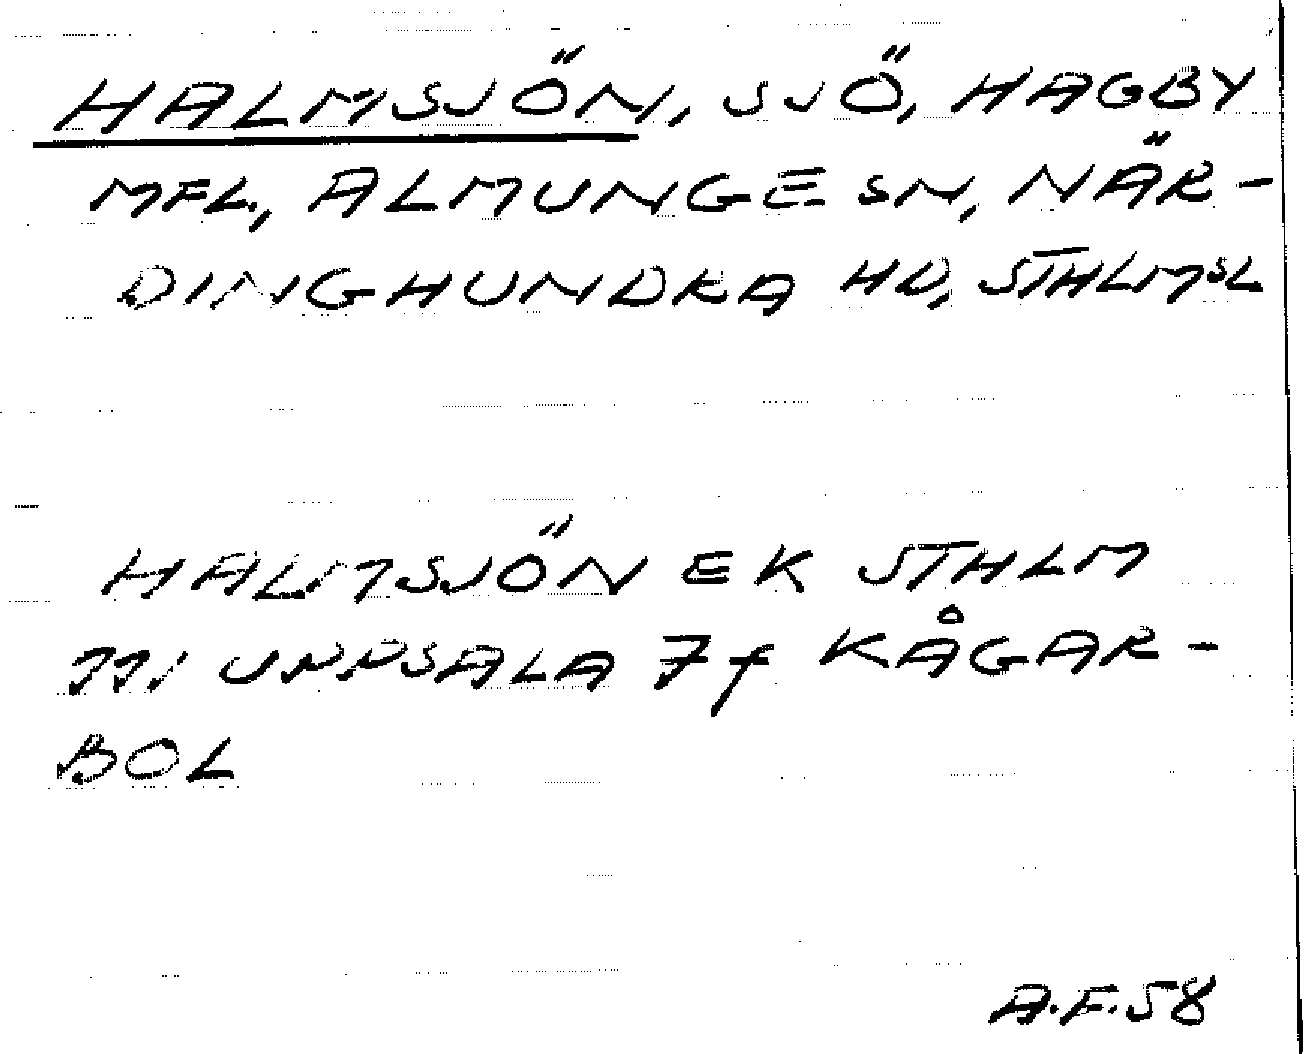 HALMSJÖN, SJÖ, HAGBY
MFL., ALMUNGE SN, NÄR-
DINGHUNDRA HD, STHLMSL
HALMSJÖN EK STHLM
111 UPPSALA 7f KÅGAR-
BOL
A.F.58